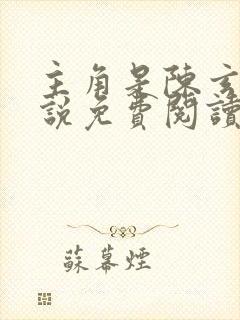 主角是陳玄
說免費閱讀
蘇幕煙